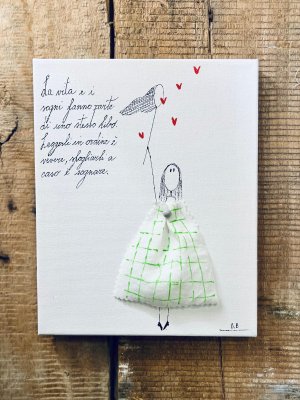 La vita e i
sogni fanno parte
di uno stesso libro.
Leggerli in ordine è
vivere, sfogliarli a
caso è sognare.